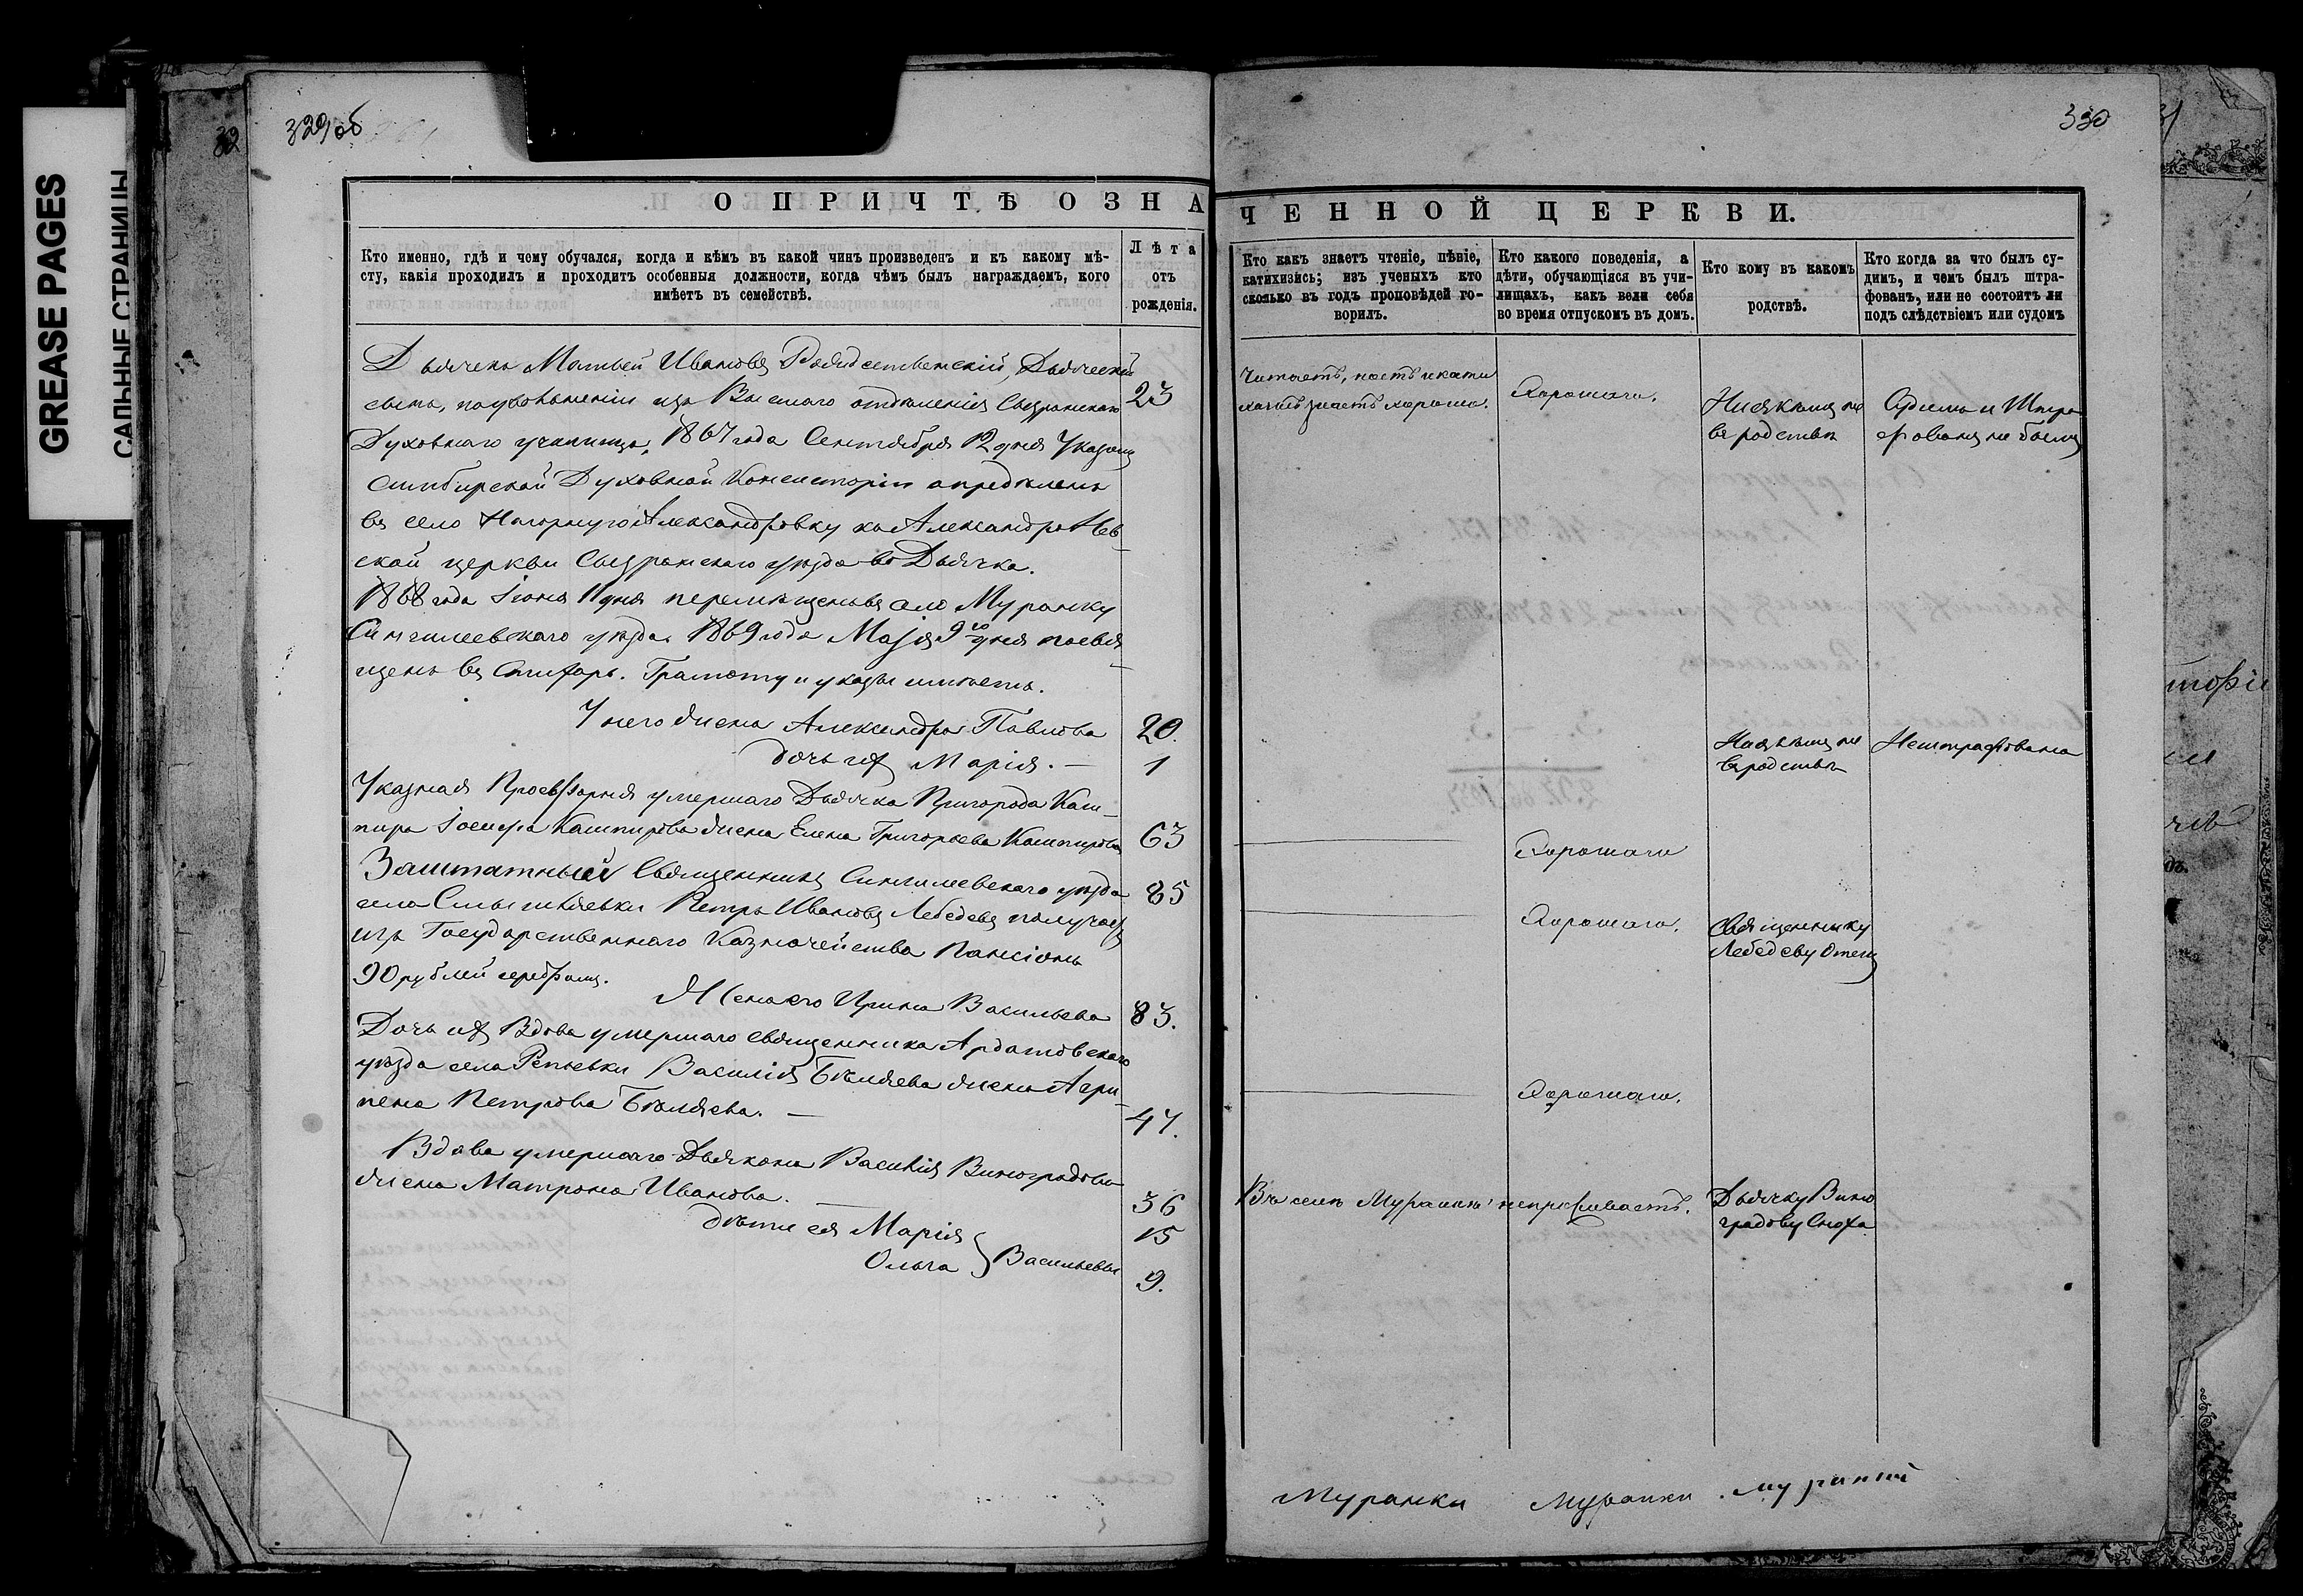 GREASE PAGES
САЛЬНЫЕ СТРАНИЦЫ
32
329об
О ПРИЧТѢ ОЗНА
Кто именно, гдѣ и чему обучался, когда и кѣмъ въ какой чинъ произведенъ и къ какому мѣ-
сту, какія проходилъ и проходитъ особенныя должности, когда чѣмъ былъ награждаемъ, кого
имѣетъ въ семействѣ.
Лѣта
отъ
рожденія.
Дьячекъ Матвей Ивановъ Рождественскій, Дьяческій
сынъ, поувольненіи изъ Высшаго отдѣленія Сызранскаго 23
Духовнаго училища, 1867 года Сентября 12 дня Указомъ
Симбирской Духовной Консисторіи опредѣленъ
въ село Нагорную Александровку къ Александро Нев-
ской церкви Сызранскаго уѣзда во Дьячка.
1868 года Іюня 11 дня перемѣщенъ въ село Муранку
Сингилеевскаго уѣзда. 1869 года Маія 9го дня посвя-
щенъ въ Стихарь. Грамоту и указы имѣетъ.
У него жена Александра Павлова 20.
дочь ихъ Марія. — 1
Указная Просвфорня умершаго Дьячка Пригорода Каш-
пира Іосифа Кашпирова жена Елена Григорьева Кашпирова 63
Заштатный Священникъ Сингилеевскаго уѣзда 85
села Смышляевки Петръ Ивановъ Лебедевъ получаетъ
изъ Государственнаго Казначейства Пансіонъ
90 рублей серебромъ.
Жена его Ирина Васильева 83.
Дочь ихъ Вдова умершаго священника Ардатовскаго
уѣзда села Репьевки Василія Бѣляева жена Агри-
пена Петрова Бѣляева. — 47.
Вдова умершаго Дьякона Василія Виноградова
жена Матрона Иванова. — 36
дѣти ея Марія 15
Ольга } Васильевы 9.
330
ЧЕННОЙ ЦЕРКВИ.
Кто какъ знаетъ чтеніе, пѣніе,
катихизисъ; изъ ученыхъ кто
сколько въ годъ проповѣдей го-
ворилъ.
Кто какого поведенія, а
дѣти, обучающіяся въ учи-
лищахъ, какъ вели себя
во время отпускомъ въ домъ.
Кто кому въ какомъ
родствѣ.
Кто когда за что былъ су-
димъ, и чемъ былъ штра-
фованъ, или не состоитъ ли
подъ слѣдствіемъ или судомъ
Читаетъ, поетъ и кати
хизисъ знаетъ хорошо.
Хорошаго.
Ни съ кѣмъ не
въ родствѣ
Судимъ и Штра
фованъ не былъ
Ни съ кѣмъ не
въ родствѣ
Не штрафована
Хорошаго
Хорошаго.
Священнику
Лебедеву Отецъ
Хорошаго.
Въ селѣ Муранкѣ непроживаетъ.
Дьячку Вино
градову Сноха
Муранки Муранки. Муранки